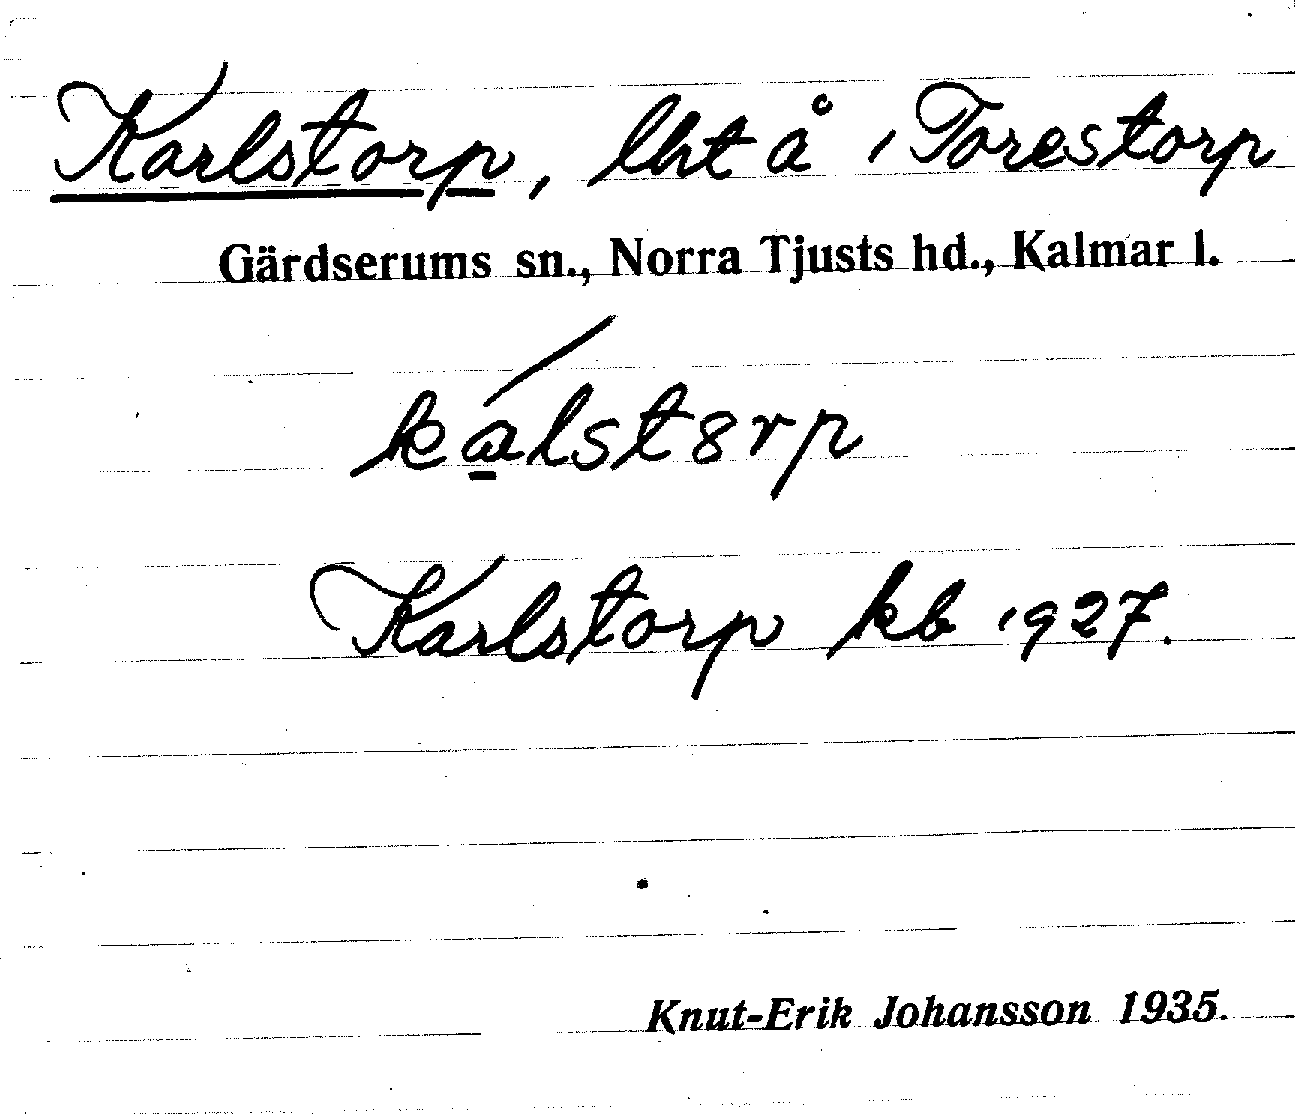 Karlstorp, lht å 1 Torestorp
Gärdserums sn., Norra Tjusts hd., Kalmar l.
ká̱lst8rp
Karlstorp kb 1927.
Knut-Erik Johansson 1935.